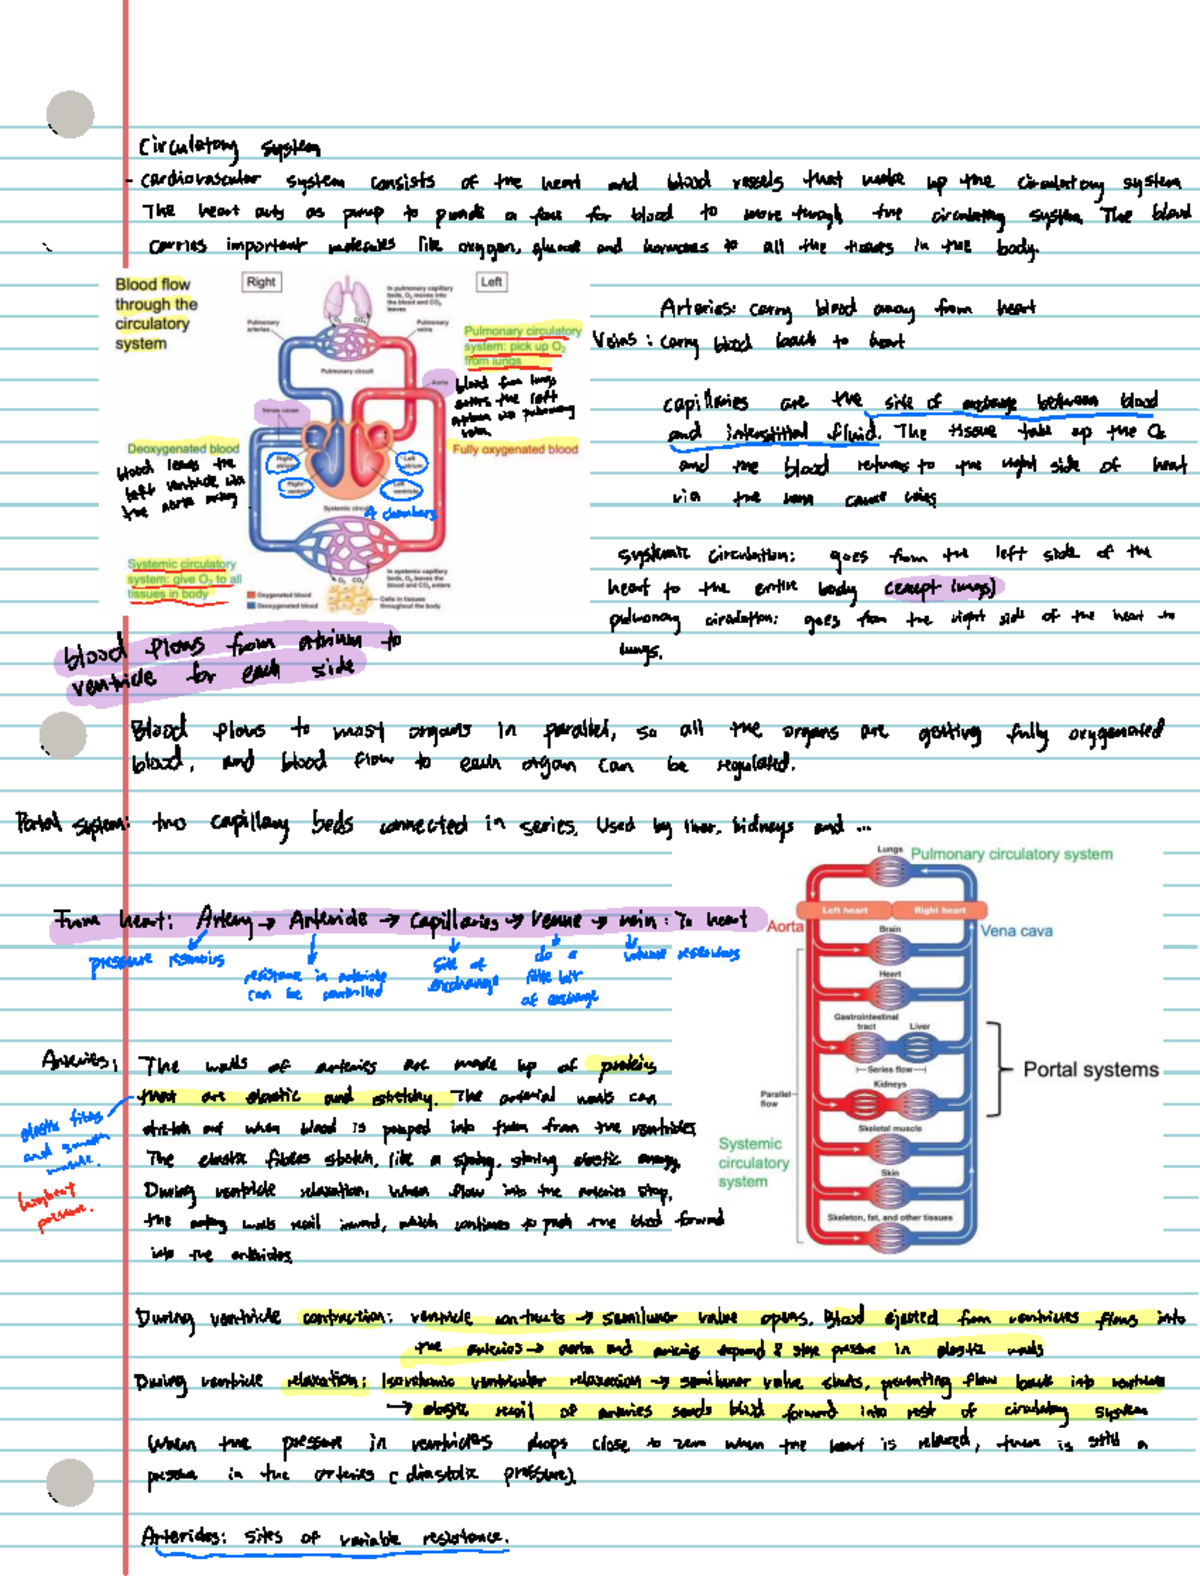 Circulatory system
- Cardiovascular system consists of the heart and blood vessels that make up the circulatory system
The heart acts as pump to provide a force for blood to move through the circulatory system. The blood
carries important molecules like oxygen, glucose and hormones to all the tissues in the body.
Blood flow
through the
circulatory
system
Right
Left
In pulmonary capillary
beds, O2 moves into
the blood and CO2
leaves
Pulmonary
arteries
Pulmonary
veins
O2
CO2
Pulmonary circuit
Pulmonary circulatory
system: pick up O2
from lungs
Aorta
blood from lungs
enters the left
atrium via pulmonary
vein.
Venae cavae
Deoxygenated blood
Fully oxygenated blood
blood leaves the
left ventricle via
the aorta artery
Right
atrium
Left
atrium
Right
ventricle
Left
ventricle
Systemic circuit
4 chambers
Systemic circulatory
system: give O2 to all
tissues in body
O2 CO2
In systemic capillary
beds, O2 leaves the
blood and CO2 enters
Oxygenated blood
Deoxygenated blood
Cells in tissues
throughout the body
Arteries: carry blood away from heart
Veins: carry blood back to heart
capillaries are the site of exchange between blood
and interstitial fluid. The tissue take up the O2
and the blood returns to the right side of heart
via the vena cavae veins
Systemic circulation: goes from the left side of the
heart to the entire body (except lungs)
pulmonary circulation: goes from the right side of the heart to
lungs.
blood flows from atrium to
ventricle for each side
Blood flows to most organs in parallel, so all the organs are getting fully oxygenated
blood, and blood flow to each organ can be regulated.
Portal system: two capillary beds connected in series. Used by liver, kidneys and ...
From heart: Artery → Arteriole → Capillaries → Venue → vein: To heart
pressure
resistance in arteriole
can be controlled
site of
exchange
do a
little bit
of exchange
volume reservoirs
Lungs
Pulmonary circulatory system
Left heart
Right heart
Aorta
Vena cava
Brain
Heart
Gastrointestinal
tract
Liver
Series flow
Kidneys
Portal systems
Parallel
flow
Skeletal muscle
Systemic
circulatory
system
Skin
Skeleton, fat, and other tissues
Arteries:
The walls of arteries are made up of proteins
that are elastic and stretchy. The arterial walls can
stretch out when blood is pumped into from the ventricles
The elastic fibers stretch, like a spring, storing elastic energy.
During ventricle relaxation, when flow into the arteries stop,
the artery walls recoil inward, which continues to push the blood forward
into the arterioles.
elastic fibers
and smooth
muscle.
highest
pressure.
During ventricle contraction: ventricle contracts → semilunar valve opens. Blood ejected from ventricles flows into
the arteries → aorta and arteries expand & store pressure in elastic walls
During ventricle relaxation: Isovolumic ventricular relaxation → semilunar valve shuts, preventing flow back into ventricle
→ elastic recoil of arteries sends blood forward into rest of circulatory system
When the pressure in ventricles drops close to zero when the heart is relaxed, there is still a
pressure in the arteries (diastolic pressure).
Arterioles: sites of variable resistance.